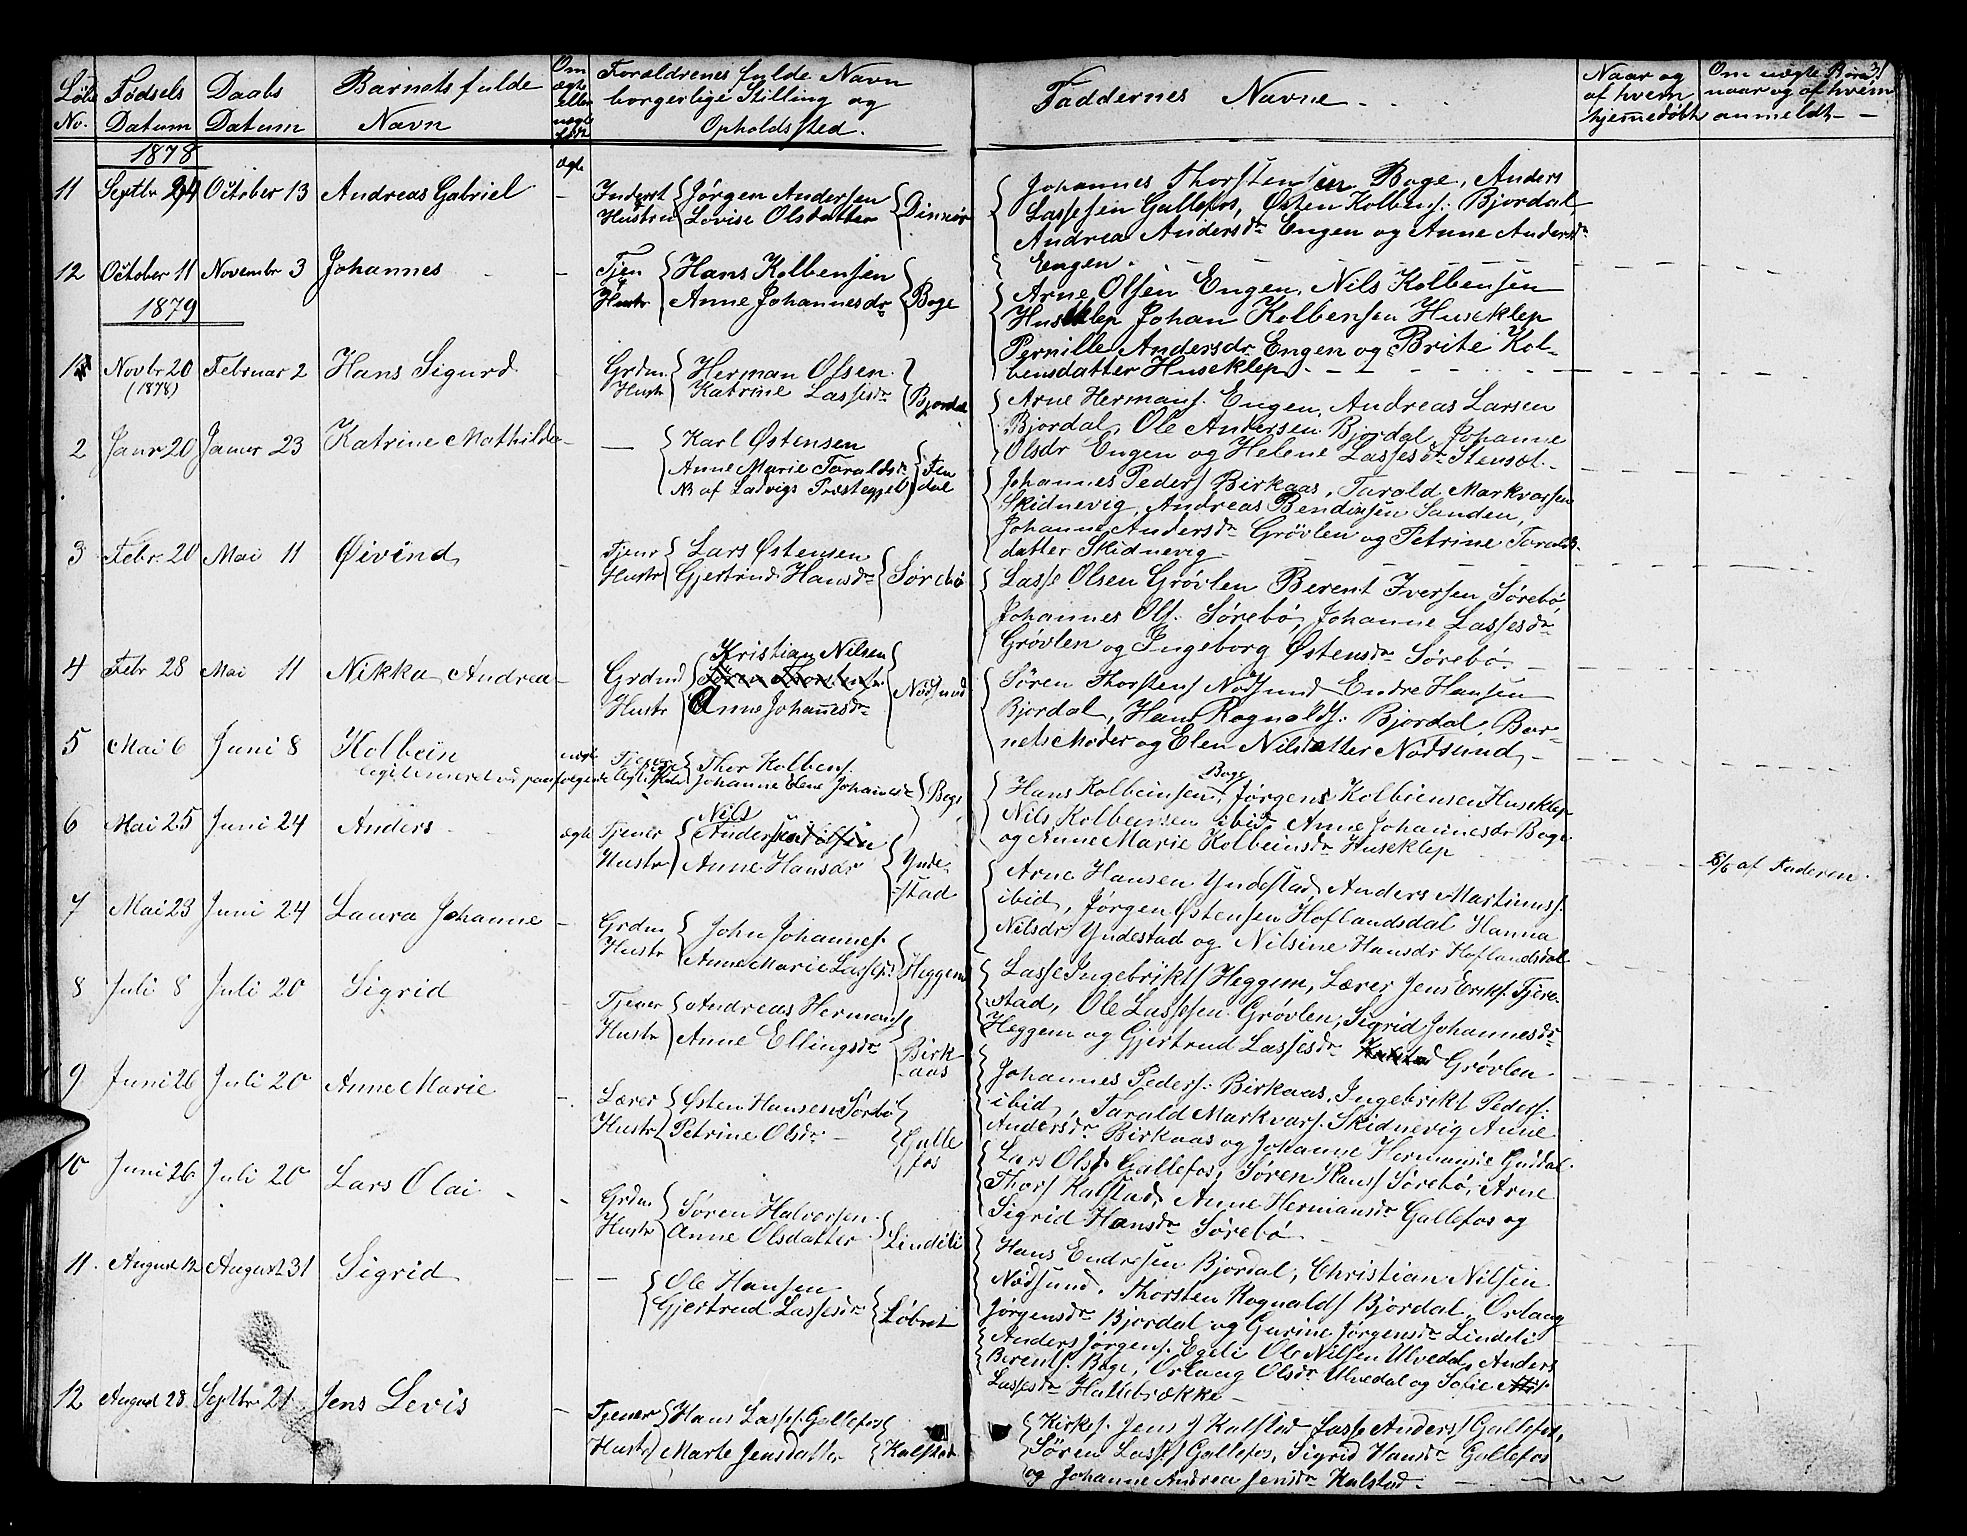 Løbe No.
Fødsels Datum
Daabs Datum
Barnets fulde Navn
Om ægte eller uægte født
Forældrenes fulde Navn borgerlige Stilling og Opholdssted.
Faddernes Navne
Naar og af hvem hjemmedøbt
Om uægte Børn naar og af hvem anmeldt
31
1878
ægte
11 Septbr 24 October 13 Andreas Gabriel - Inderst Jørgen Andersen
Hustru Lovise Olsdatter Dinnør
Johannes Thorstensen Boge, Anders
Lassesen Gallefos, Østen Kolbens: Bjordal
Andrea Andersdr Engen og Anne Andersdr
Engen.
12 October 11 Novembr 3 Johannes - Tjen Hans Kolbensen
Hustr Anne Johannesdr Boge
Arne Olsen Engen, Nils Kolbensen
Huseklep Johan Kolbensen Huseklep
Pernille Andersdr Engen og Brite Kol-
bensdatter Huseklep.
1879
1 Novbr 20 Februar 2 Hans Sigurd - Grdm. Herman Olsen
(1878) Hustr Katrine Lassesdr Bjordal
Arne Hermans. Engen, Andreas Larsen
Bjordal, Ole Andersen Bjordal, Johanne
Olsdr Engen og Helene Lassesdr Stensæt.
2 Janr 20 Januar 23 Katrine Mathilda - Karl Østensen
Anne Marie Taraldsdr
NB af Ladvigs Præstegjeld Fendal
Johannes Peders Birkaas, Tarald Markvarsen
Skidnevig, Andreas Bendixsen Sanden,
Johanne Andersdr Grøvlen og Petrine Taralds-
datter Skidnevig
3 Febr. 20 Mai 11 Øivind - Tjener Lars Østensen
Hustr Gjertrud Hansdr Sørebø
Lasse Olsen Grøvlen Berent Iversen Sørebø
Johannes Ols. Sørebø, Johanne Lassesdr
Grøvlen og Ingeborg Østensdr Sørebø.
4 Febr 28 Mai 11 Nikka Andrea - Grdmd Kristian Nilsen
Hustr Anne Johanesdr Nødsund
Søren Thorstens Nødsund Endre Hansen
Bjordal, Hans Rognalds: Bjordal, Bar-
nets Moder og Elen Nilsdatter Nødsund
5 Mai 6 Juni 8 Kolbein uægte Tjener Thor Kolbens.
Johanne Elene Johannesdr Boge
Hans Kolbeinsen Boge, Jørgen Kolbiensen Huseklep
Nils Kolbensen ibid, Anne Johannesdr Boge
og Anne Marie Kolbeinsdr Huseklep
8/6 af Faderen.
6 Mai 25 Juni 24 Anders ægte Tjener Nils Andersen
Hustr Anne Hansdr Yndestad
Arne Hansen Yndestad, Anders Martinuss.
ibid, Jørgen Østensen Hoflandsdal Hanna
Nilsdr Yndestad og Nilsine Hansdr Hoflandsdal
7 Mai 23 Juni 24 Laura Johanne - Grdm John Johannes.
Hustr Anne Marie Lassesdr Heggem
Lasse Ingebrikts Heggem, Lærer Jens Eriks. Tjøre-
stad, Ole Lassesen Grøvlen, Sigrid Johannesdr
Heggem og Gjertrud Lassesdr Grøvlen.
8 Juli 8 Juli 20 Sigrid - Tjener Andreas Hermans
Hustr Anne Ellingsdr Birkaas
Johannes Peders: Birkaas, Ingebrikt Peders:
ibid, Tarald Markvars. Skidnevig Anne
Andersdr Birkaas og Johanne Hermansdr
9 Juni 26 Juli 20 Anne Marie - Lærer Østen Hansen Sørbø
Hustr Petrine Olsdr Gallefos
Lars Ols. Gallefos, Søren Hans Sørebø, Arne
Thors Kalstad, Anne Hermansdr Gallefos og
Sigrid Hansdr Sørebø
10 Juni 26 Juli 20 Lars Olai - Grdm. Søren Halvorsen
Hustr Anne Olsdatter Lindeli
Hans Endresen Bjordal, Christian Nilsen
Nødsund, Thorsten Rognalds Bjordal, Orlaug
Jørgensdr Bjordal og Gurine Jørgensdr Lindeli
11. August 12 August 31 Sigrid - Ole Hansen
Gjertrud Lassesdr Løbret
Anders Jørgens. Egeli Ole Nilsen Ulvedal, Anders
Berents. Boge, Orlaug Olsdr Ulvedal og Sofie
Lassesdr Hallebrække
12 August 28 Septbr 21 Jens Levis - Tjener Hans Lasses. Gallefos
Hustr Marte Jensdatter Kalstad
Kirkes. Jens J Kalstad Lasse Anders Gallefos,
Søren Lasses Gallefos, Sigrid Hansdr Gallefos
og Johanne Andrea Jensdr Kalstad.